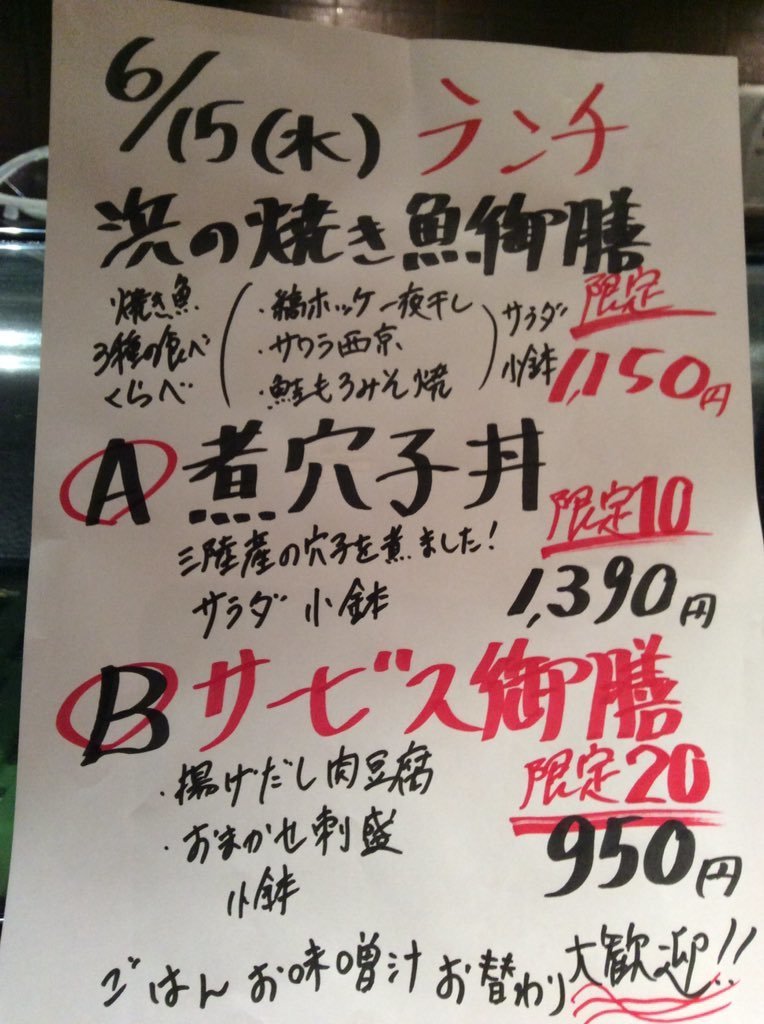 6/15(水) ランチ
浜の焼き魚御膳
焼き魚
3種の食べ
くらべ
・縞ホッケ一夜干し
・サワラ西京
・鮭もろみそ焼
サラダ
小鉢
限定
1,150円
A 煮穴子丼
三陸産の穴子を煮ました!
サラダ 小鉢
限定10
1,390円
B サービス御膳
・揚げだし肉豆腐
・おまかせ刺盛
小鉢
限定20
950円
ごはん お味噌汁 お替わり大歓迎!!